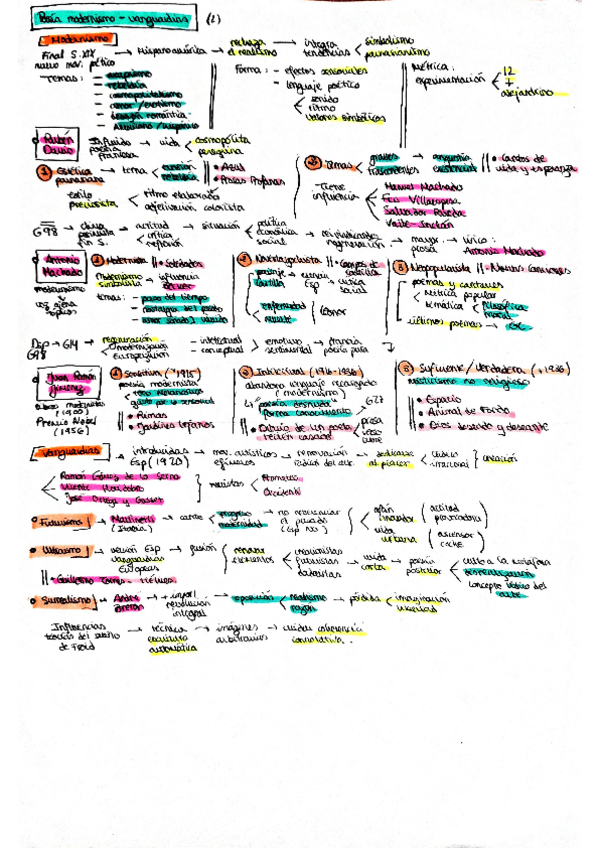 Poesía modernismo - vanguardias (2)
Modernismo
Final S.XIX → Hispanoamérica → rechaza el realismo → integra tendencias < simbolismo parnasianismo
nuevo mov. poético
Temas: - escapismo
- rebeldía
- cosmopolitalismo
- amor / erotismo
- desazón romántica
Forma: - efectos sensoriales
- lenguaje poético
< sonido
ritmo
valores simbólicos
Métrica: experimentación < 12 7 alejandrino
Rubén Darío
Influido poesía francesa → vida < cosmopolita peregrina
① Estética parnasiana → tema < evasión rebeldía || • Azul • Prosas Profanas
estilo preciosista < ritmo elaborado adjetivación colorista
② Temas < graves trascendentes → angustia existencial || • Cantos de vida y esperanza
Tiene influencia < Manuel Machado
Fco Villaespesa
Salvador Rueda
Valle-Inclán
G98 → fin S. → actitud crítica reflexión → situación < política económica social → regeneración → prosa lírica: Antonio Machado
Antonio Machado
① Modernista || • Soledades
modernismo simbolismo → influencia
temas: - paso del tiempo
- nostalgia del pasado
② Noventayochista || • Campos de Castilla
paisaje Castilla → esencia Esp → crítica social
< enfermedad muerte } Leonor
③ Neopopularista || • Nuevas canciones
- poemas y cantares
< métrica popular
temática < filosófica moral
- últimos poemas → GC
Dsp G98 → G14 → regeneración modernización europeización → - intelectual - conceptual > emotivo sentimental → Francia poesía pura
Juan Ramón Jiménez
(1900)
Premio Nobel (1956)
① Sensitiva (-1915)
poesía modernista
• Rimas
• Jardines lejanos
② Intelectual (1916-1936)
abandono lenguaje recargado (modernismo)
↳ "poesía desnuda" forma conocimiento < G27
• Diario de un poeta recién casado < prosa verso libre
③ Suficiente / Verdadera (+1936)
misticismo no religioso
• Espacio
• Animal de Fondo
• Dios deseado y deseante
Vanguardias → introducidas Esp (1920) → mov. artísticos efímeros → renovación → dedicarse al placer < lúdico irracional } creación
< Ramón Gómez de la Serna
Vicente Huidobro
José Ortega y Gasset } revistas <
• Futurismo → Marinetti (Italia) → canta < progreso modernidad → (Esp NO) < afán innovador (actitud provocadora)
vida urbana (ascensor coche)
• Ultraísmo → versión Esp vanguardias europeas → fusión < renovar elementos < creacionistas futuristas dadaístas → vida corta → poesía posterior < culto a la metáfora
concepto lúdico del arte
|| • Guillermo Torre - Hélices
• Surrealismo → André Breton → + import. revolución integral → oposición < realismo razón → pérdida < imaginación libertad
Influencias teorías del sueño de Froid → técnica escritura automática → imágenes arbitrarias → coherencia connotativa.